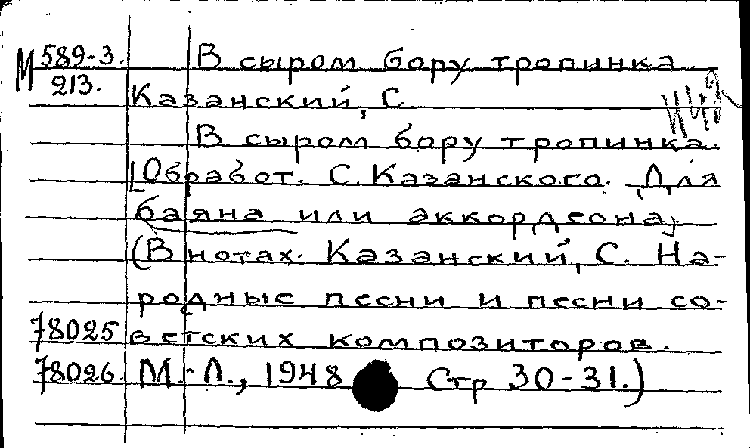 М 589-3. В сыром бору тропинка.
213.
Казанский, С.
В сыром бору тропинка.
[Обработ. С. Казанского. Для
баяна или аккордеона]
(В нотах. Казанский, С. На-
родные песни и песни со-
78025 ветских композиторов.
78026. М.-Л., 1948 Стр 30-31.)